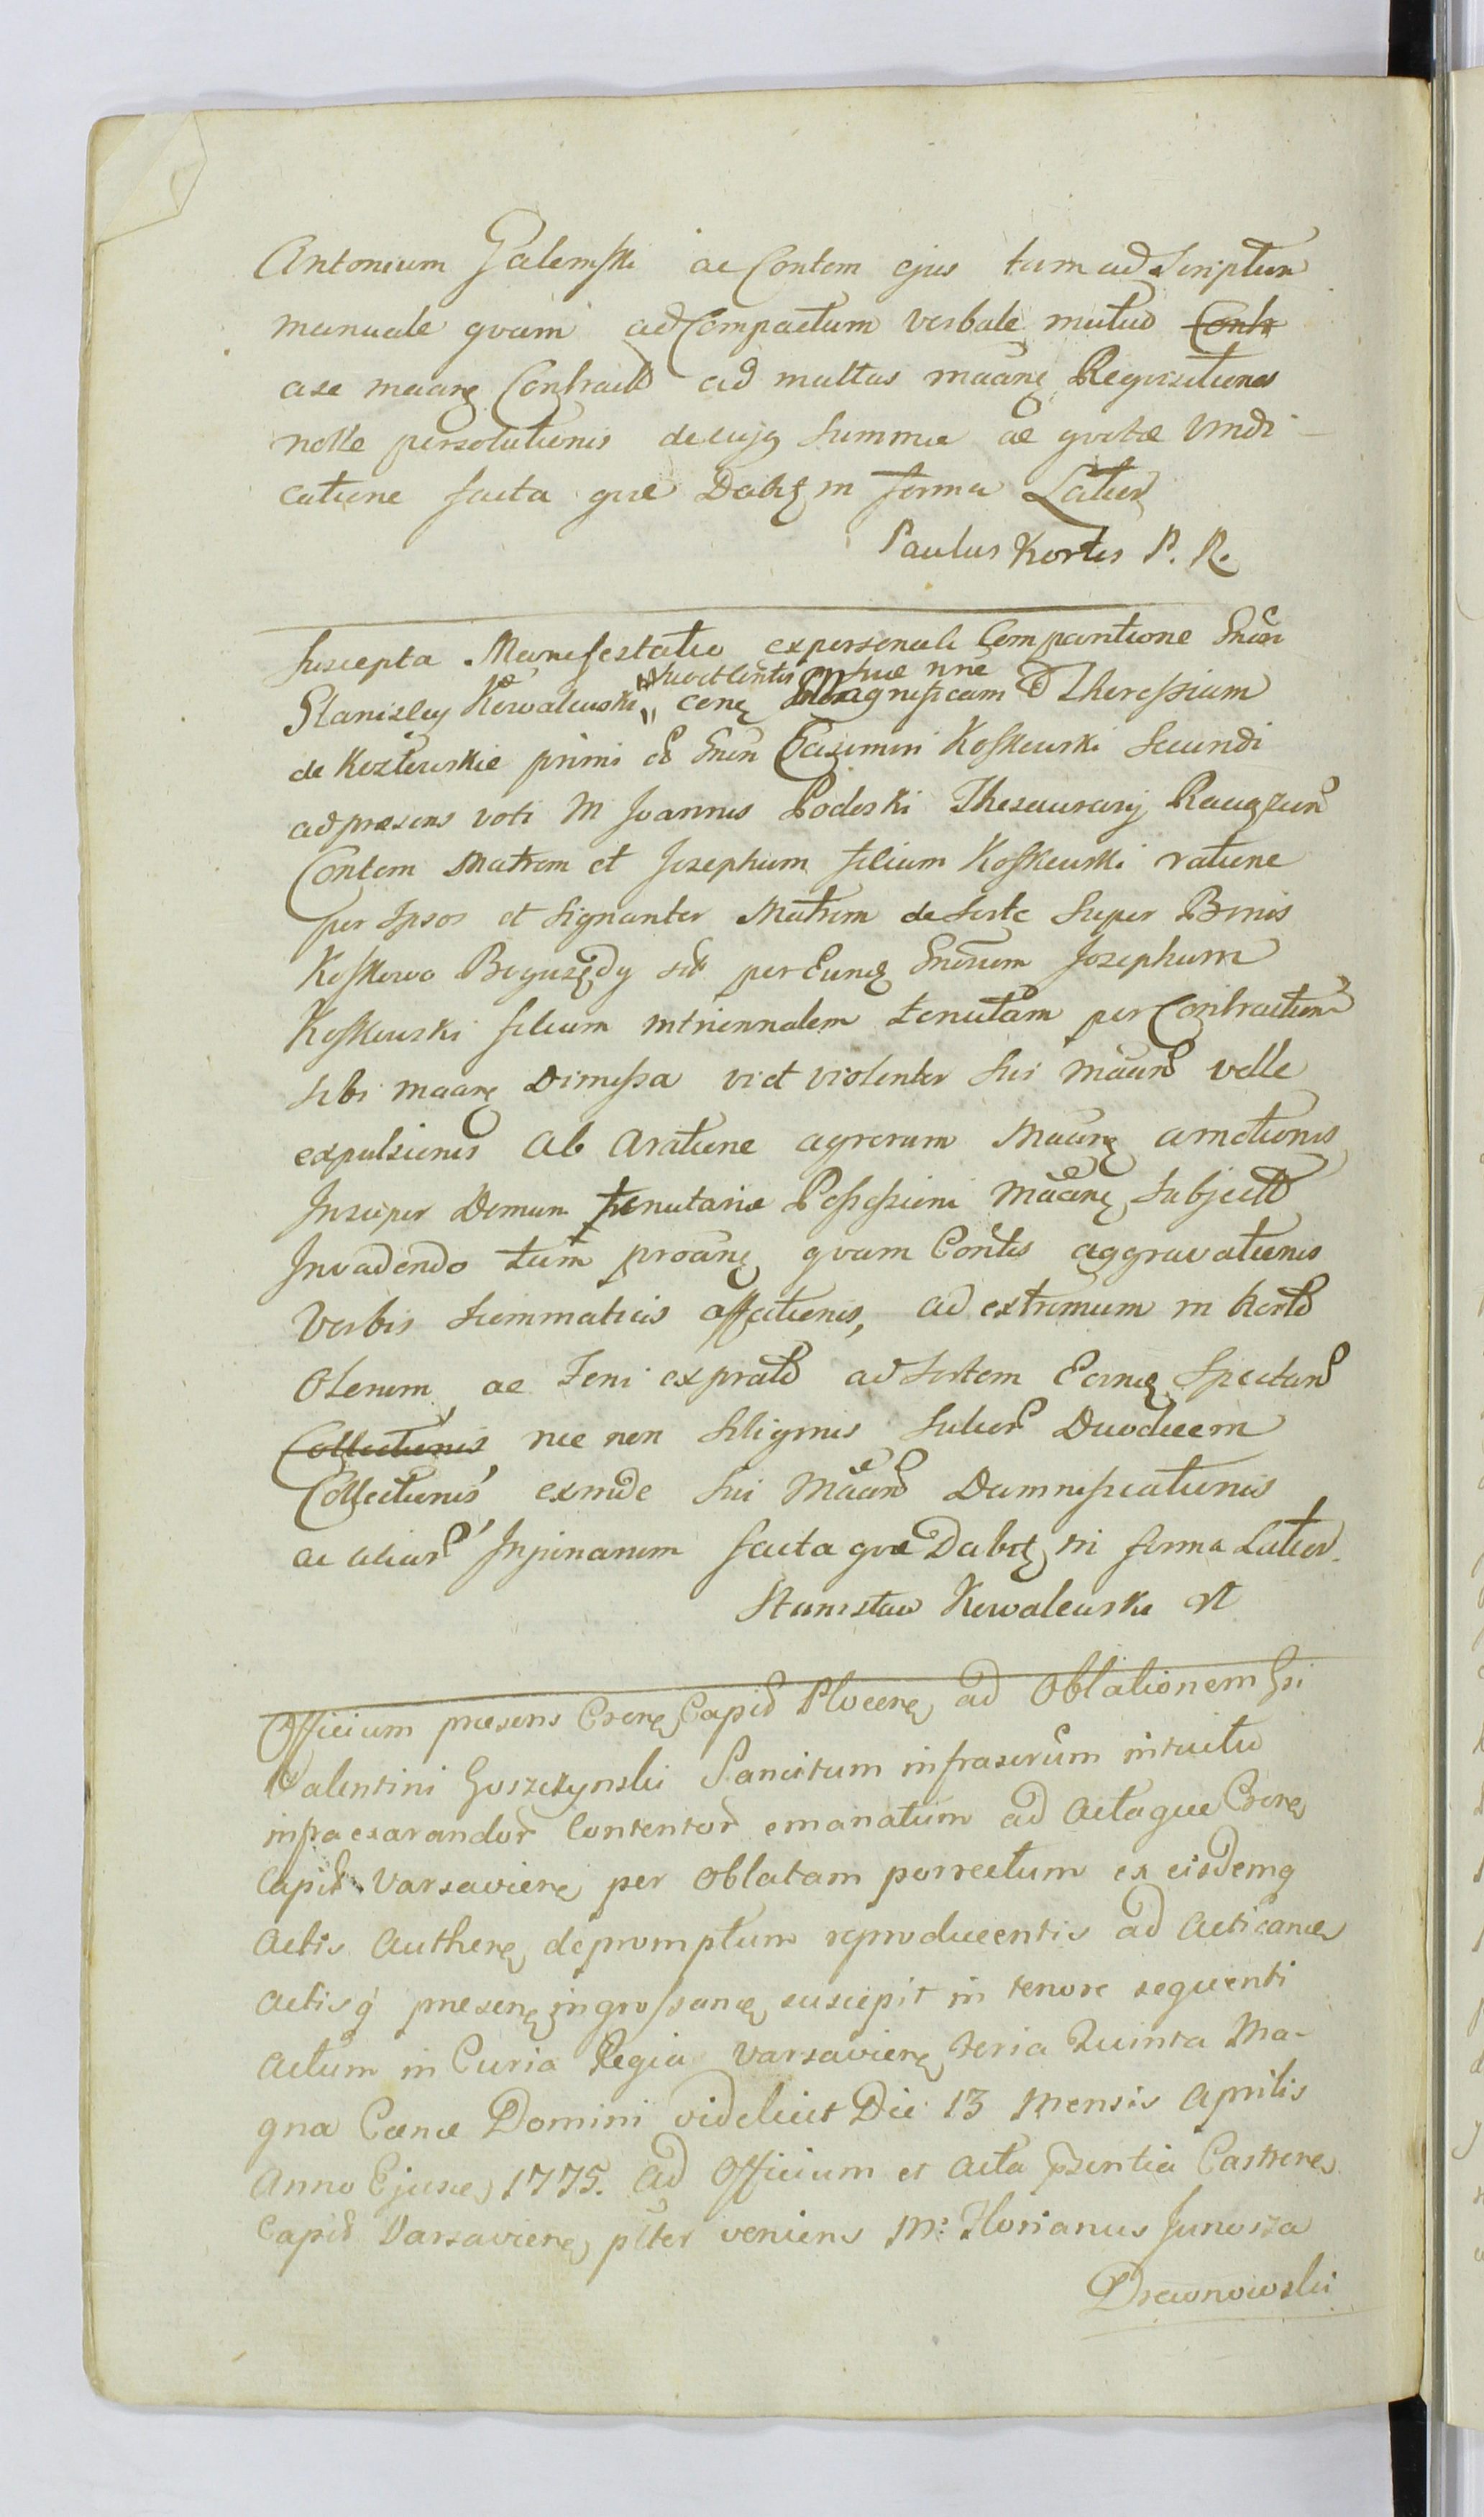 Antonium Galemski ac Contem ejus tam ad Scriptum
manuale qvam ad Compactum verbale mutuo Contr
ase maarꝫ Contracto ad multas maanꝫ Reqvisitiones
nolle persolutionis de cujꝫ Summæ ac qvotæ Vindi
catione facta qvæ Dabitꝫ in forma Latior
Paulus Kortes P. R.
Suscepta Manifestatio ex personali Comparitione Gnosi
suo et Contis suæ nne
Stanislaj Kowalewski cenꝫ Magnificam D Theressiam
de Kozłowskie primi olim Gnosi Casimiri Koskowski Secundi
ad præsens voti M Joannis Podoski Thesaurarij Raciązen
Contem Matrem et Josephum filium Koskowski ratione
per Ipsos et Signanter Matrem de Sorte Super Bonis
Koskowo Boguszędy sit per Eunꝫ Gnosum Josephum
Koskowski filium in triennalem tenutam per Contractum
Sibi maarꝫ Dimissa vi et violenter Sui maan velle
expulsionis ab aratione agrorum Maanꝫ amotionis
Insuper Domum tenutariæ Possessioni maanꝫ Subjecto
Invadendo tum proanꝫ qvam Contis aggravationis
Verbis Summaticis affectionis, ad extremum in horto
Olerum, ac Feni ex prato ad Sortem Eamꝫ Spectan
Collectionis nec non Siliginis Duodecem
Collectionis exinde Sui Maan Damnificationis
ac aliar Injuriarum facta qvæ Dabitꝫ in forma Latior
Stanisław Kowalewski
Officium præsens Crenꝫ Capid Plocenꝫ ad Oblationem Gsi
Valentini Goszczynski Sancitum infrascrum intuitu
infra exarandor Contentor emanatum ad Actaque Crenꝫ
Capid Varsavienꝫ per Oblatam porrectum ex eisdemq
Actis Authenꝫ depromptum reproducentis ad Acticanꝫ
Actisq præsenꝫ ingrossanꝫ suscepit in tenore sequenti
Actum in Curia Regia Varsavienꝫ Feria Quinta Ma-
gna Cænæ Domini videlicet Die 13 Mensis Aprilis
Anno Ejusꝫ 1775. Ad Officium et Acta præsentia Castrenꝫ
Capid Varsavienꝫ plter veniens M: Florianus Junosza
Drewnowski